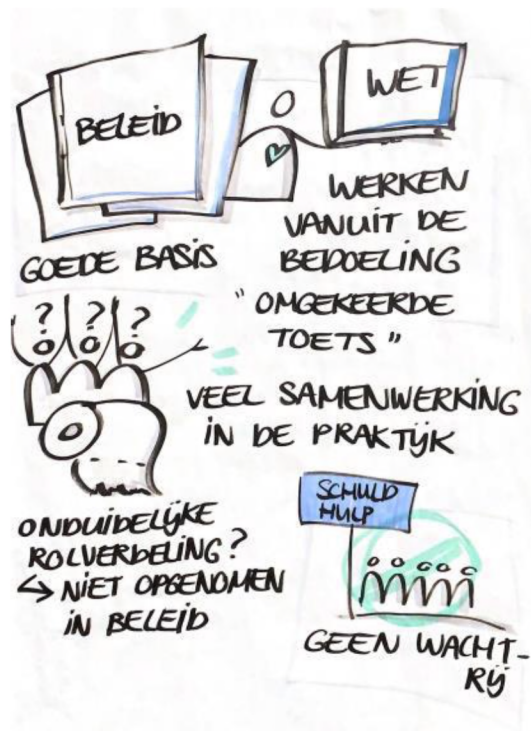 BELEID
WET
GOEDE BASIS
WERKEN
VANUIT DE
BEDOELING
"OMGEKEERDE
TOETS"
? ? ?
VEEL SAMENWERKING
IN DE PRAKTIJK
ONDUIDELIJKE
ROLVERDELING?
↳ NIET OPGENOMEN
IN BELEID
SCHULD
HULP
GEEN WACHT-
RIJ